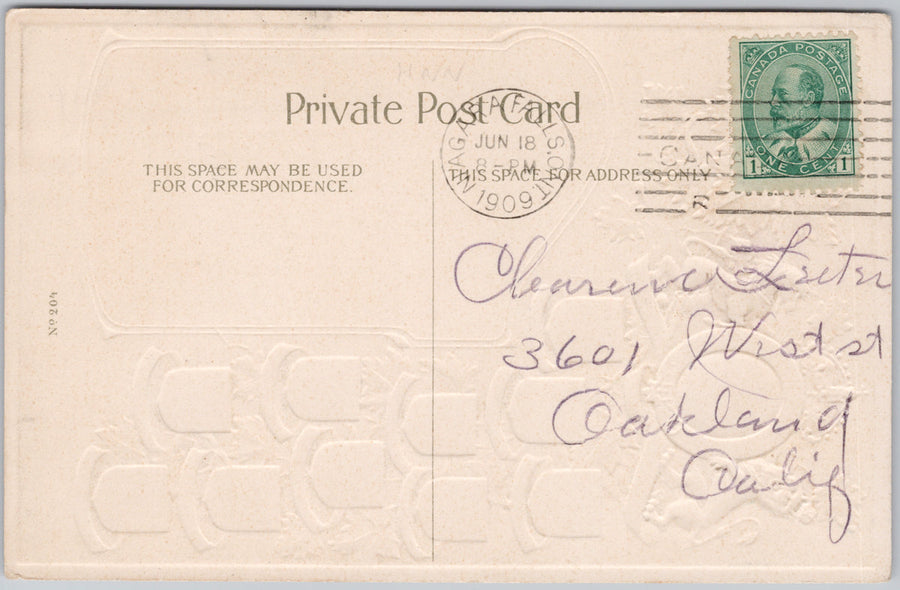 Private Post Card
THIS SPACE MAY BE USED
FOR CORRESPONDENCE.
THIS SPACE FOR ADDRESS ONLY
NIAGARA FALLS. ONT.
JUN 18
8-PM
1909
CANADA POSTAGE
ONE CENT
1 1
CANADA
No 204
Clearence
3601 West st
Oakland
Calif